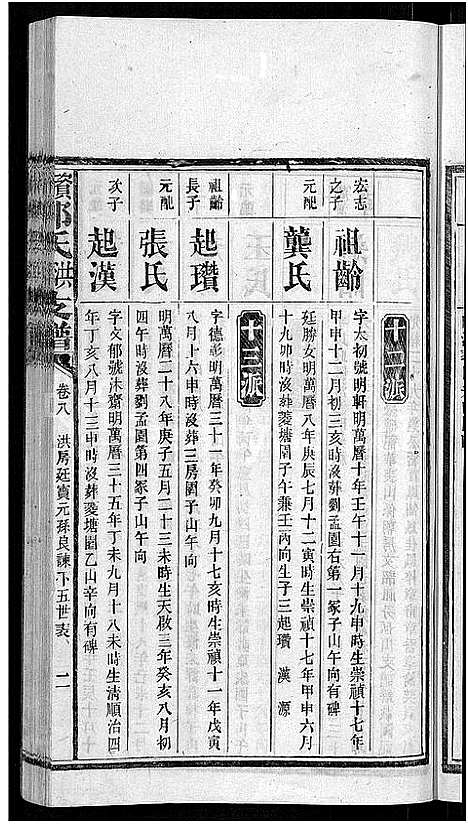 十二派
宏志之子
祖齡
字太初號明軒明萬曆十年壬午十一月十九申時生崇禎十七年
甲申十二月初三亥時沒葬劉孟園右第一冢子山午向有碑
元配
龔氏
廷勝女明萬曆八年庚辰七月十二寅時生崇禎十七年甲申六月
十九卯時沒葬菱塘園子午兼壬丙向生子三起瓚 漢 源
十三派
祖齡長子
起瓚
字德彰明萬曆三十一年癸卯九月十七亥時生崇禎十一年戊寅
八月十六申時沒葬三房園子山午向
元配
張氏
明萬曆二十八年庚子五月二十三未時生天啟三年癸亥八月初
四午時沒葬劉孟園第四冢子山午向
次子
起漢
字文郁號沐齋明萬曆三十五年丁未九月十八未時生清順治四
年丁亥八月十三申時沒葬菱塘園乙山辛向有碑
資邱氏洪支譜
卷八
洪房廷寶元孫良諫下五世表
二